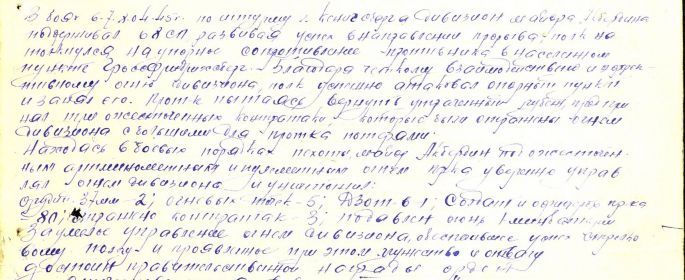 В боях 6-7.8.04.45г. по штурму г. Кенигсберга дивизион майора
поддерживал СП развивая успех в направлении прорыва; полк на
толкнулся на упорное сопротивление противника в населенном
пункте Гросфридрихсберг. Благодаря четкому взаимодействию и эффек-
тивному огню дивизиона, полк успешно атаковал опорный пункт
и занял его. Против. пытаясь вернуть утраченный рубеж, предпри-
нял три ожесточенных контратаки, которые были отражены огнем
дивизиона с большими для противника потерями.
Находясь в боевых порядках пехоты, майор под ожесточен-
ным артминометным и пулеметным огнем пр-ка уверенно управ
лял огнем дивизиона и уничтожил:
орудий 37мм - 2; огневых точек - 5; Дзот-ов 1; Солдат и офицеров пр-ка
- 80; отражено контратак - 3; подавлен огонь 1 минбатареи
За умелое управление огнем дивизиона, обеспечившее успех стрелко-
вому полку и проявленное при этом мужество и отвагу
достоин правительственной награды орден